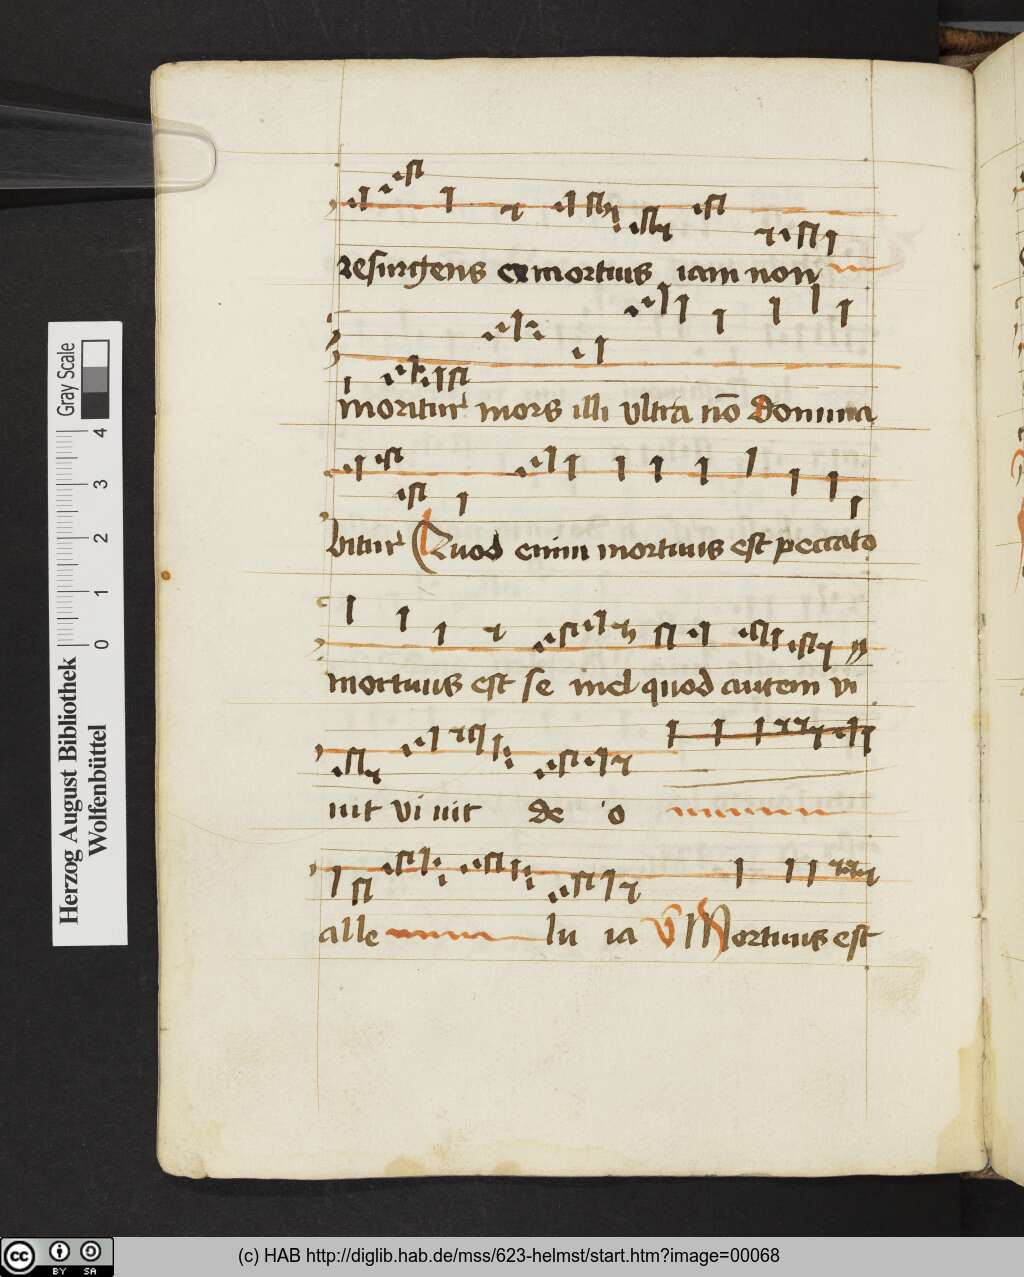 resurgens ex mortuis iam non
moritur mors illi ultra nō domina
bitur Quod enim mortuus est peccato
mortuus est se mel quod autem vi
uit vi uit de o
alle lu ia V Mortuus est
Gray Scale
0 1 2 3 4
Herzog August Bibliothek
Wolfenbüttel
cc BY SA
(c) HAB http://diglib.hab.de/mss/623-helmst/start.htm?image=00068